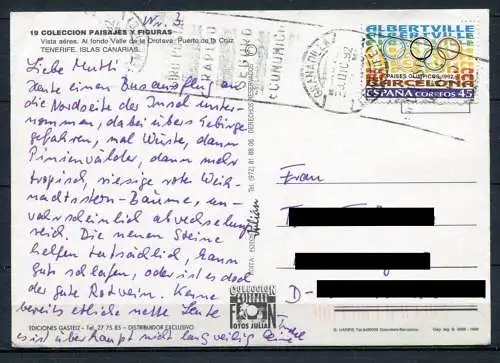 Nr. 3
19 COLECCION PAISAJES Y FIGURAS
Vista aérea. Al fondo Valle de la Orotava; Puerto de la Cruz
TENERIFE. ISLAS CANARIAS.
Liebe Mutti!
Heute einen Busausflug auf
die Nordseite der Insel unter-
nommen, dabei übers Gebirge
gefahren, mal Wüste, dann
Pinienwälder, dann mehr
tropisch, riesige rote Weih-
nachtsstern-Bäume, un-
wahrscheinlich abwechslungs
reich. Die neuen Steine
helfen tatsächlich, kann
gut schlafen, oder ist es doch
der gute Rotwein. Kenne
bereits etliche nette Leute
es ist überhaupt nicht langweilig
EDICIONES GASTEIZ - Tel. 27 75 85 - DISTRIBUIDOR EXCLUSIVO
RAPIDO
SEGURO
ECONOMICO
DIC. 92
ALBERTVILLE
PAISES OLIMPICOS 1992
BARCELONA
ESPAÑA CORREOS 45
Tel. (972) 81 89 06
COLECCION
FOTOS JULIAN
Frau
D-